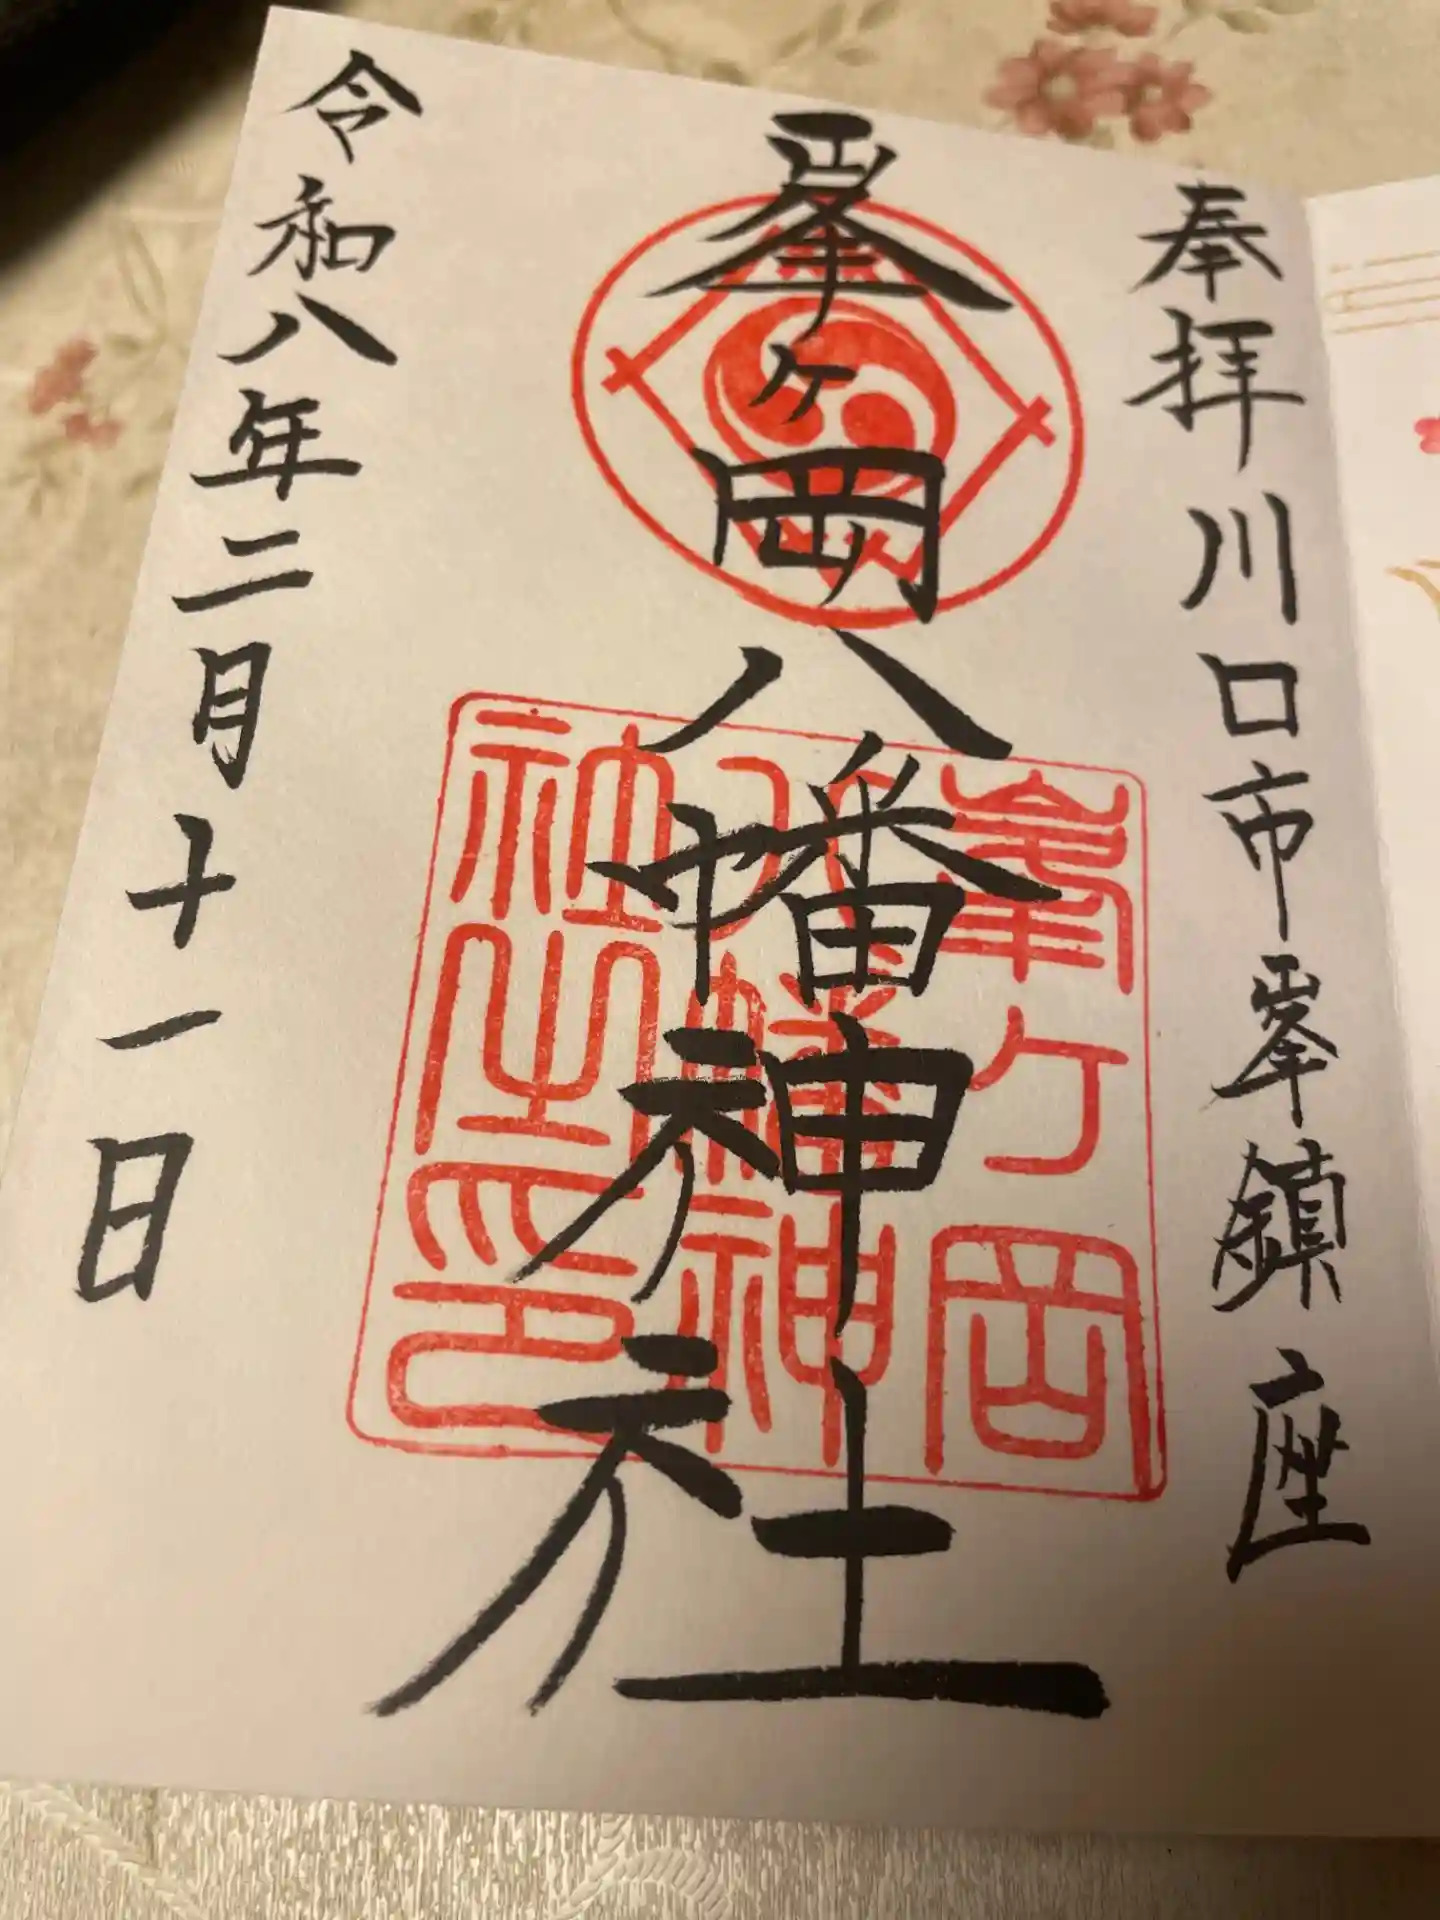 奉拝 川口市峯鎮座
峯ヶ岡八幡神社
峯ケ岡
八幡神
社之印
令和八年二月十一日